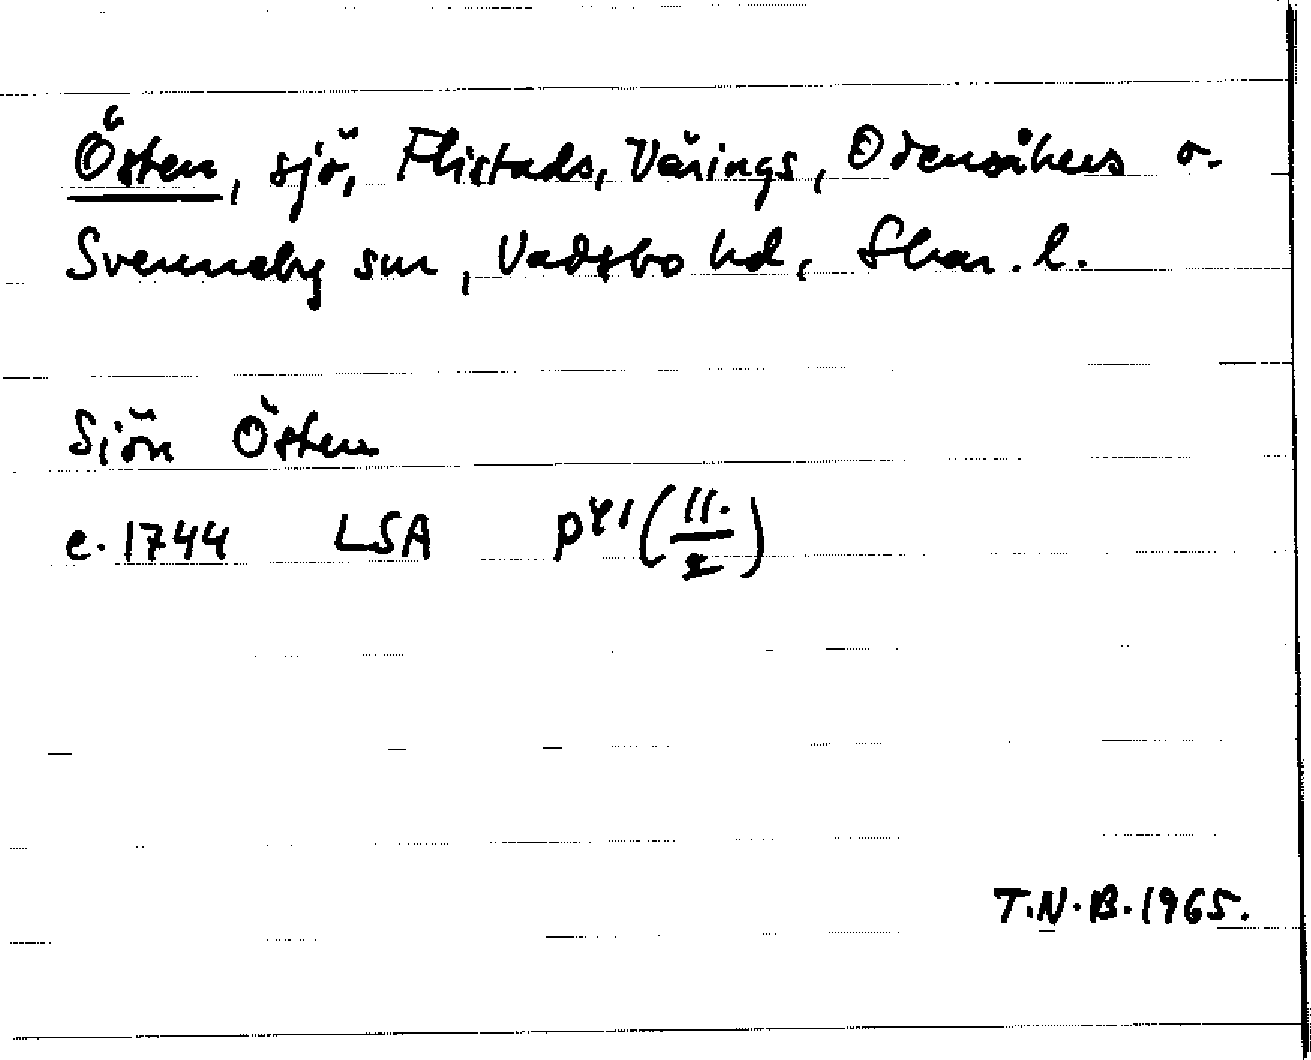 Östen, sjö, Flistads, Värings, Odensåkers o.
Svenneby snr, Vadsbo hd, Skar. l.
Siön Östen
c. 1744 LSA P41 (11./2)
T.N.B. 1965.